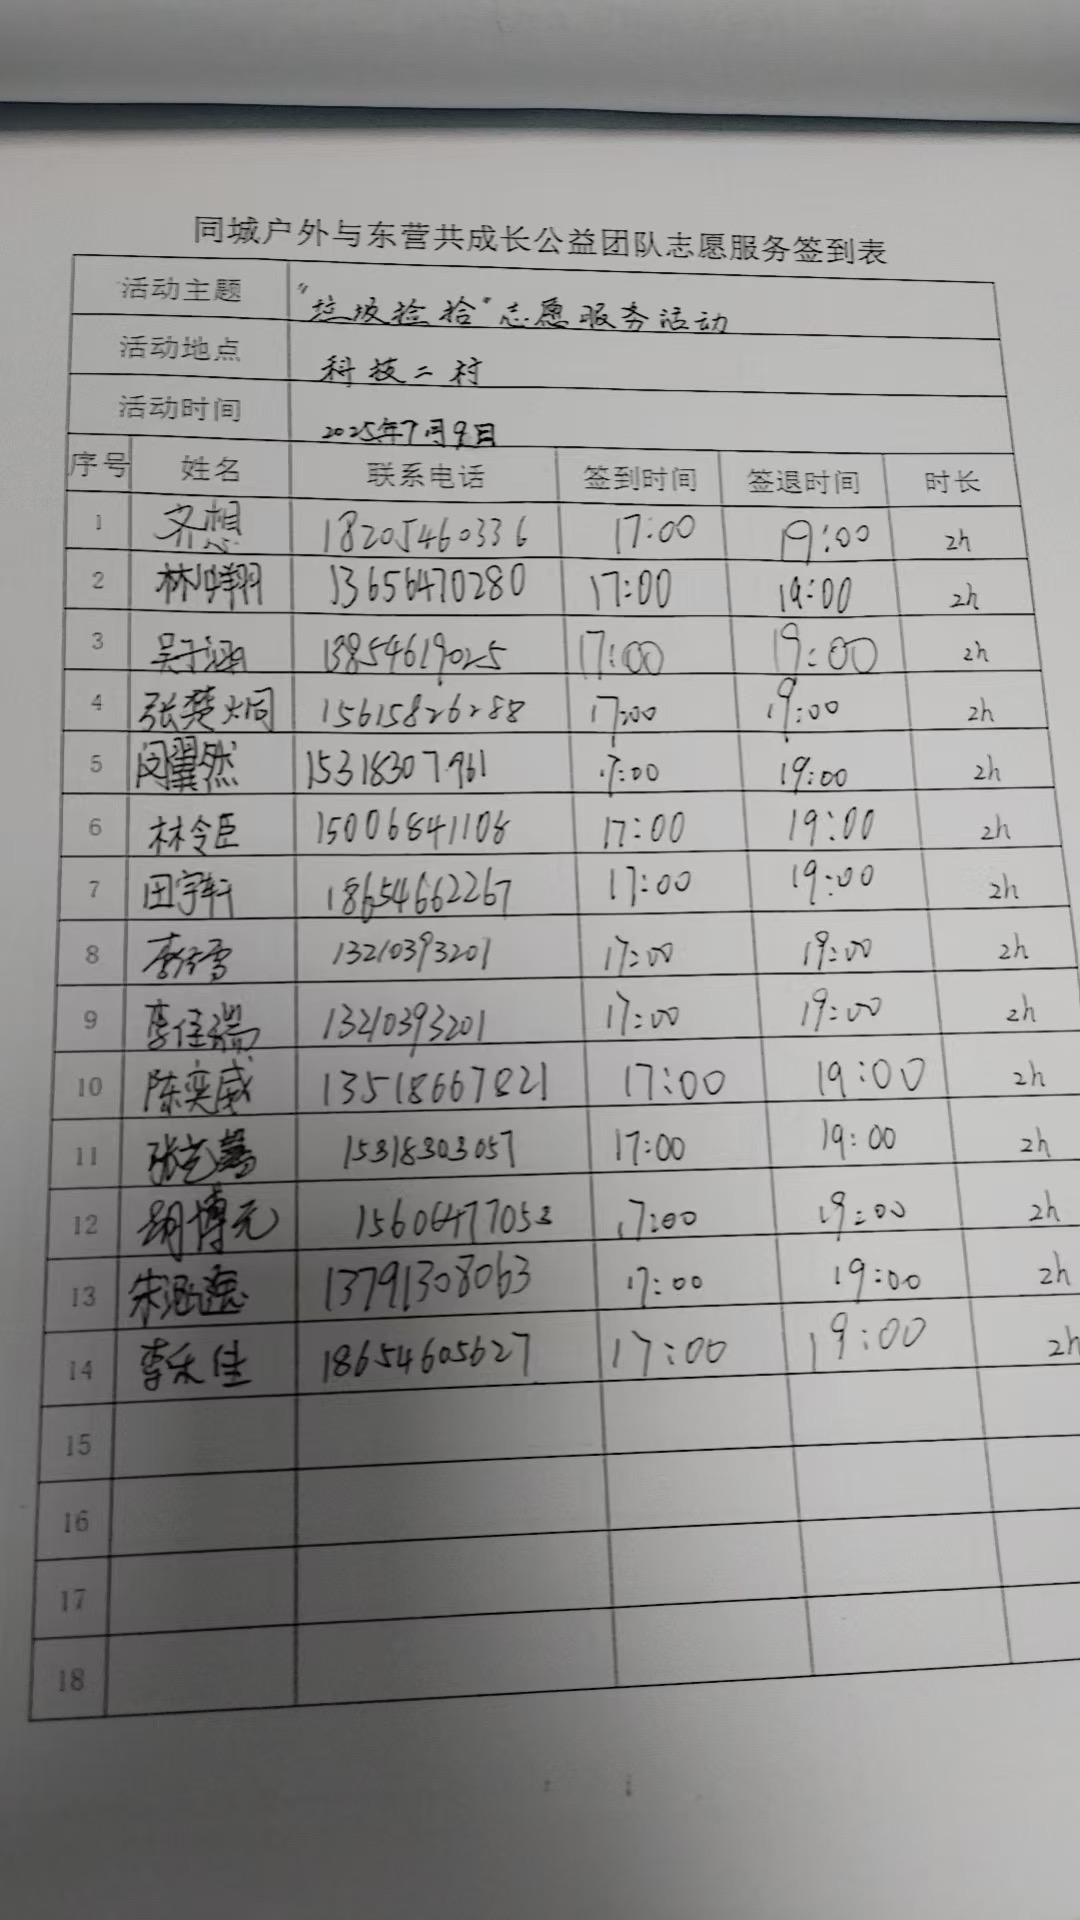 同城户外与东营共成长公益团队志愿服务签到表
活动主题 “垃圾捡拾”志愿服务活动
活动地点 科技二村
活动时间 2025年7月9日
序号 姓名 联系电话 签到时间 签退时间 时长
1 齐想 18205460336 17:00 19:00 2h
2 林 翔 13656470280 17:00 19:00 2h
3 吴子涵 13854619025 17:00 19:00 2h
4 张楚炯 15615826288 17:00 19:00 2h
5 闵翼然 15318307961 17:00 19:00 2h
6 林令臣 15006841108 17:00 19:00 2h
7 田宇轩 18654662267 17:00 19:00 2h
8 李 雪 13210393201 17:00 19:00 2h
9 李佳瑞 13210393201 17:00 19:00 2h
10 陈奕威 13518667821 17:00 19:00 2h
11 张 15318303057 17:00 19:00 2h
12 胡博元 15606477053 17:00 19:00 2h
13 朱涵 13791308063 17:00 19:00 2h
14 李乐佳 18654605627 17:00 19:00 2h
15
16
17
18